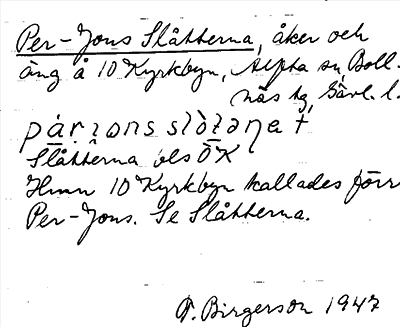 Per-Jons Slåtterna, åker och
äng å 10 Kyrkbyn, Alfta sn, Boll-
näs tg, Gävl. l.
Slåtterna bls ÖK
Hmn 10 Kyrkbyn kallades förr
Per-Jons. Se Slåtterna.
Birgerson 1947